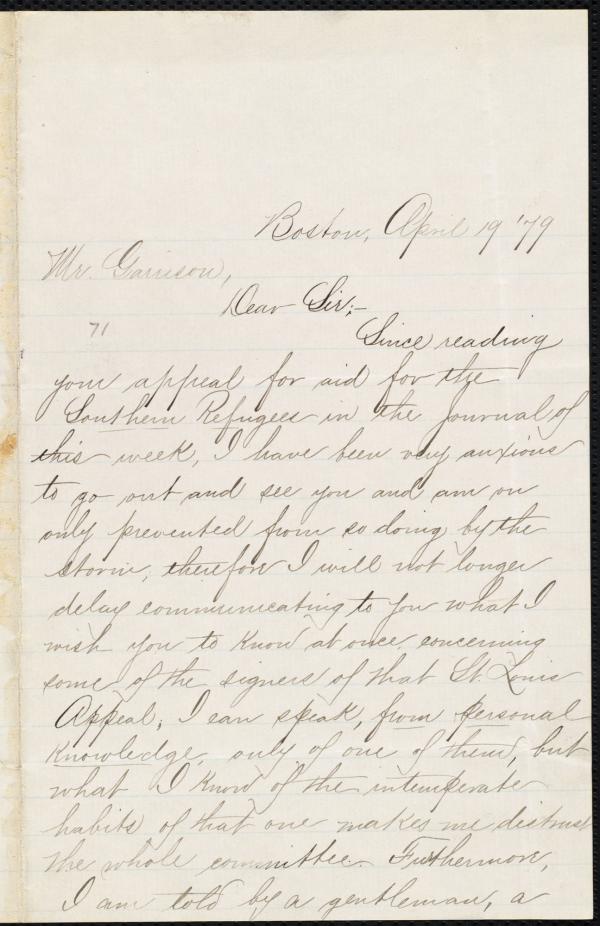 Boston, April 19 '79
Mr. Garrison,
Dear Sir;-
71
Since reading
your appeal for aid for the
Southern Refugees in the Journal of
this week, I have been very anxious
to go out and see you and am on
only prevented from so doing by the
storm, therefore I will not longer
delay communicating to you what I
wish you to know at once concerning
some of the signers of that St. Louis
Appeal; I can speak, from personal
knowledge, only of one of them, but
what I know of the intemperate
habits of that one makes me distrust
the whole committee. Furthermore,
I am told by a gentleman, a